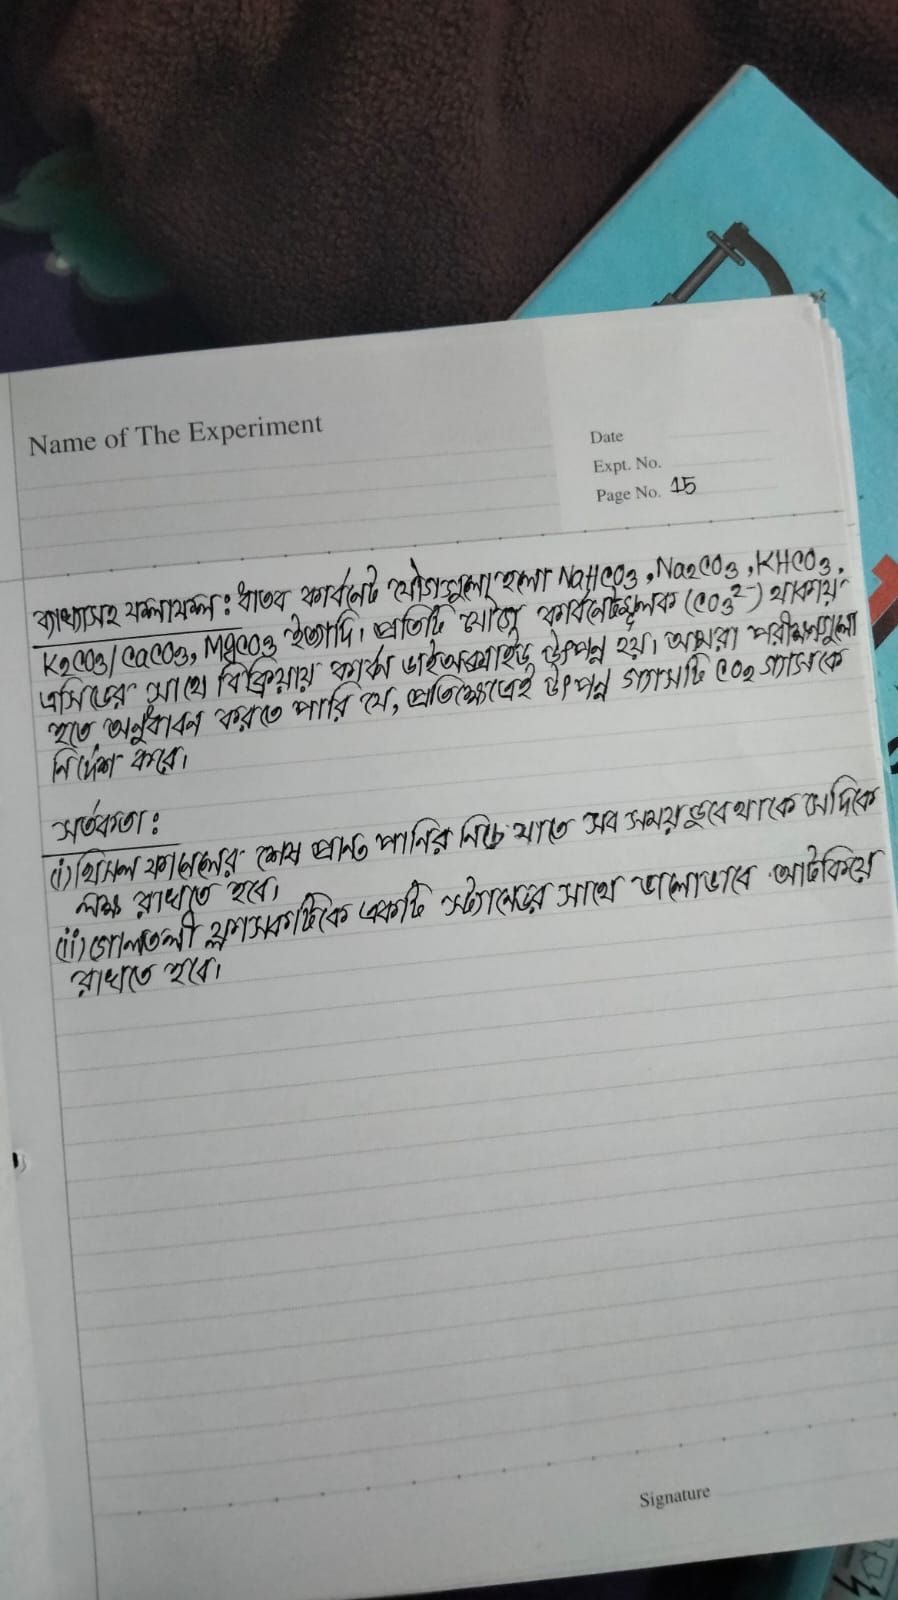 Name of The Experiment
Date
Expt. No.
Page No. 15
ব্যাখ্যাসহ ফলাফল: ধাতব কার্বনেট যৌগগুলো হলো NaHCO3, Na2CO3, KHCO3,
K2CO3/CaCO3, MgCO3 ইত্যাদি। প্রতিটি যৌগে কার্বনেটমূলক (CO3²⁻) থাকায়
এসিডের সাথে বিক্রিয়ায় কার্বন ডাইঅক্সাইড উৎপন্ন হয়। আমরা পরীক্ষাগুলো
হতে অনুধাবন করতে পারি যে, প্রতিক্ষেত্রেই উৎপন্ন গ্যাসটি CO2 গ্যাসকে
নির্দেশ করে।
সর্তকতা:
(i) থিসল ফানেলের শেষ প্রান্ত পানির নিচে যাতে সব সময় ডুবে থাকে সেদিকে
লক্ষ রাখতে হবে।
(ii) গোলতলী ফ্লাসকটিকে একটি স্ট্যান্ডের সাথে ভালোভাবে আটকিয়ে
রাখতে হবে।
Signature